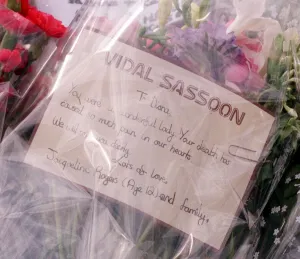 VIDAL SASSOON
To Diana,
You were a wonderful lady. Your death has
caused so much pain in our hearts
We will
of love,
Jacqueline Rogers (Age 12) and family.